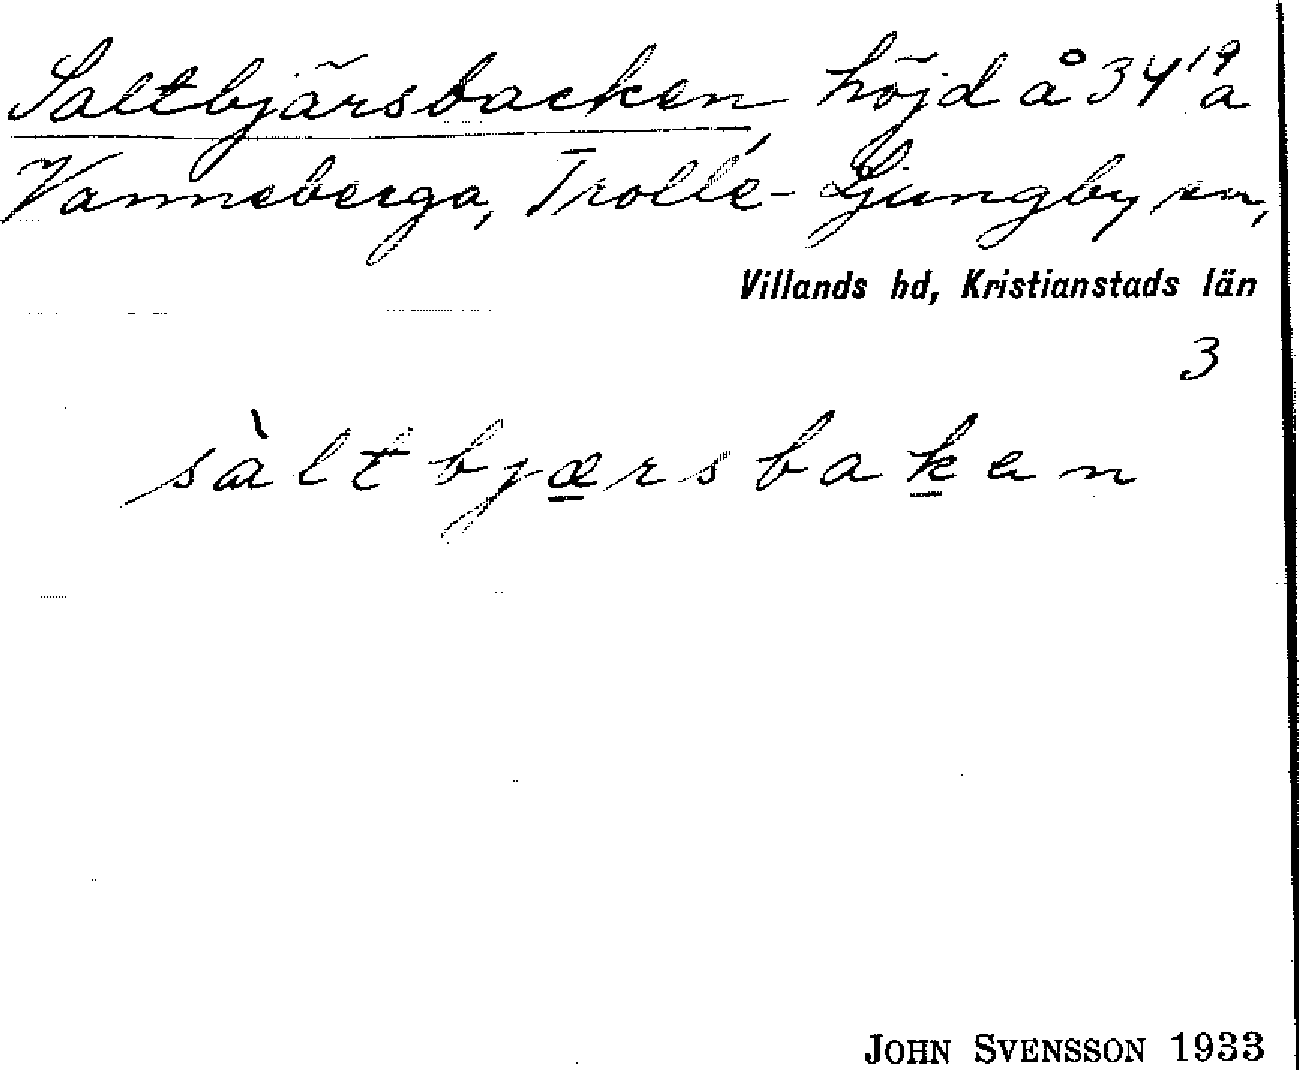 Saltbjärsbacken, höjd å 34¹⁹a
Vanneberga, Trolle-Ljungby sn,
Villands hd, Kristianstads län
3
sàltbjærsbaken
JOHN SVENSSON 1933